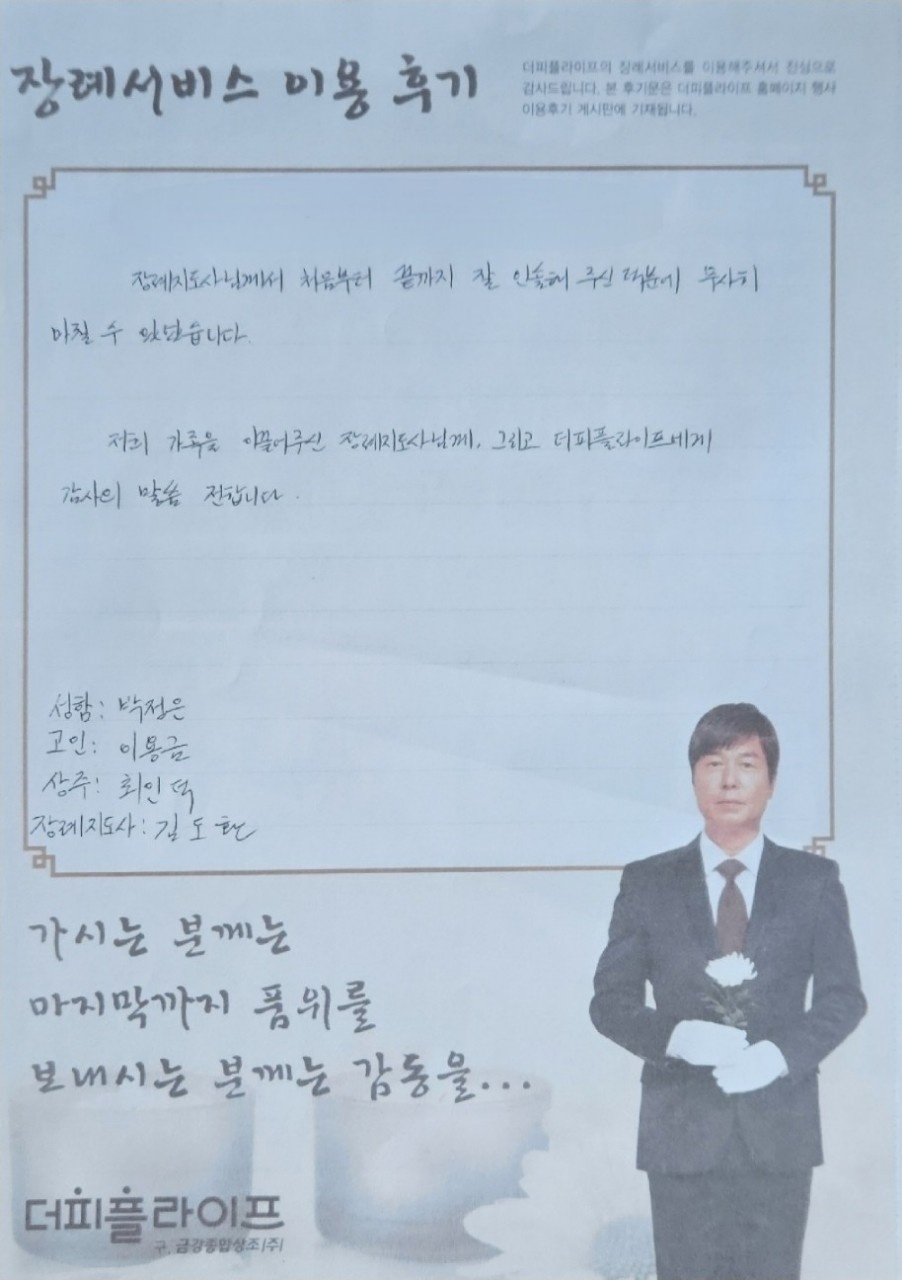 장례서비스 이용 후기
더피플라이프의 장례서비스를 이용해주셔서 진심으로
감사드립니다. 본 후기문은 더피플라이프 홈페이지 행사
이용후기 게시판에 기재됩니다.
장례지도사님께서 처음부터 끝까지 잘 인솔해 주신 덕분에 무사히
마칠 수 있었습니다.
저희 가족을 이끌어주신 장례지도사님께, 그리고 더피플라이프에게
감사의 말씀 전합니다.
성함: 박정은
고인: 이용금
상주: 최인덕
장례지도사: 김도환
가시는 분께는
마지막까지 품위를
보내시는 분께는 감동을...
더피플라이프
구. 금강종합상조(주)